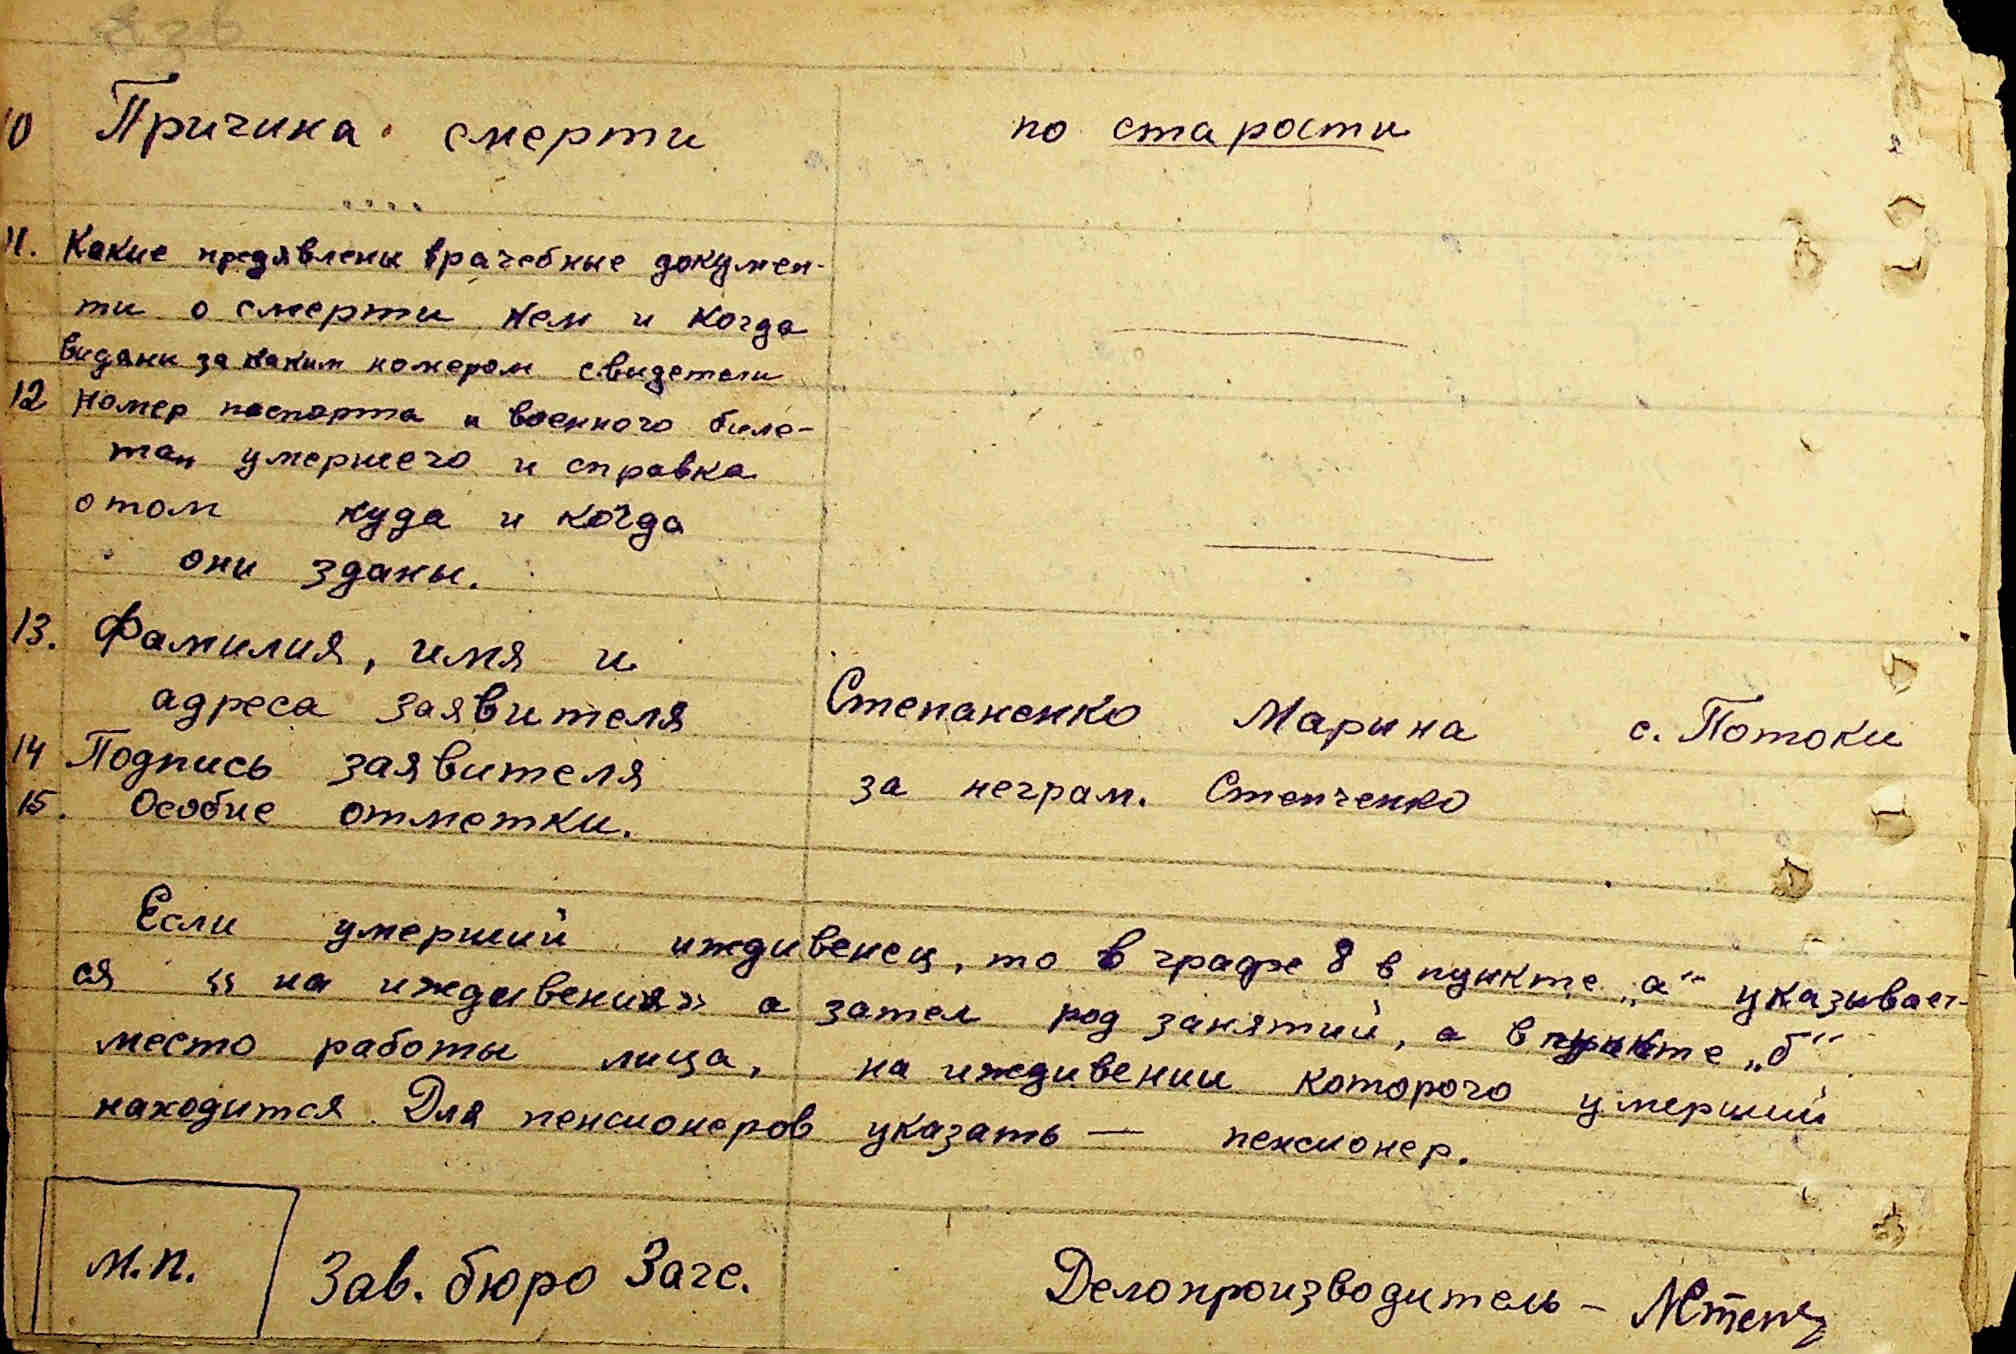 10 Причина смерти по старости
11. Какие предявлены врачебные докумен-
ти о смерти кем и когда
видани за каким номером свидетели
12 номер паспорта и военного биле-
та умершего и справка
о том куда и когда
они зданы.
13. Фамилия, имя и
адреса заявителя Степаненко Марына с. Потоки
14 Подпись заявителя за неграм. Степченко
15. Особие отметки.
Если умерший иждивенец, то в графе 8 в пункте „а“ указывает-
ся «на иждивения» а затем род занятий, а в пункте „б“
место работы лица, на иждивении которого умерший
находится. Для пенсионеров указать — пенсионер.
м.п. Зав. бюро Загс. Делопроизводитель –